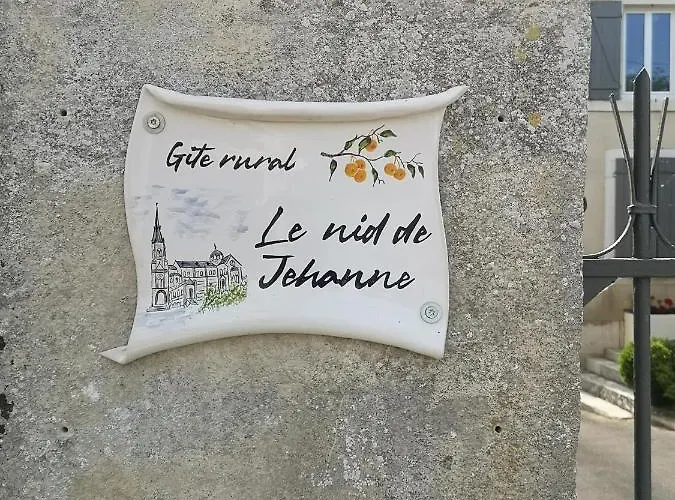 Gite rural
Le nid de
Jehanne